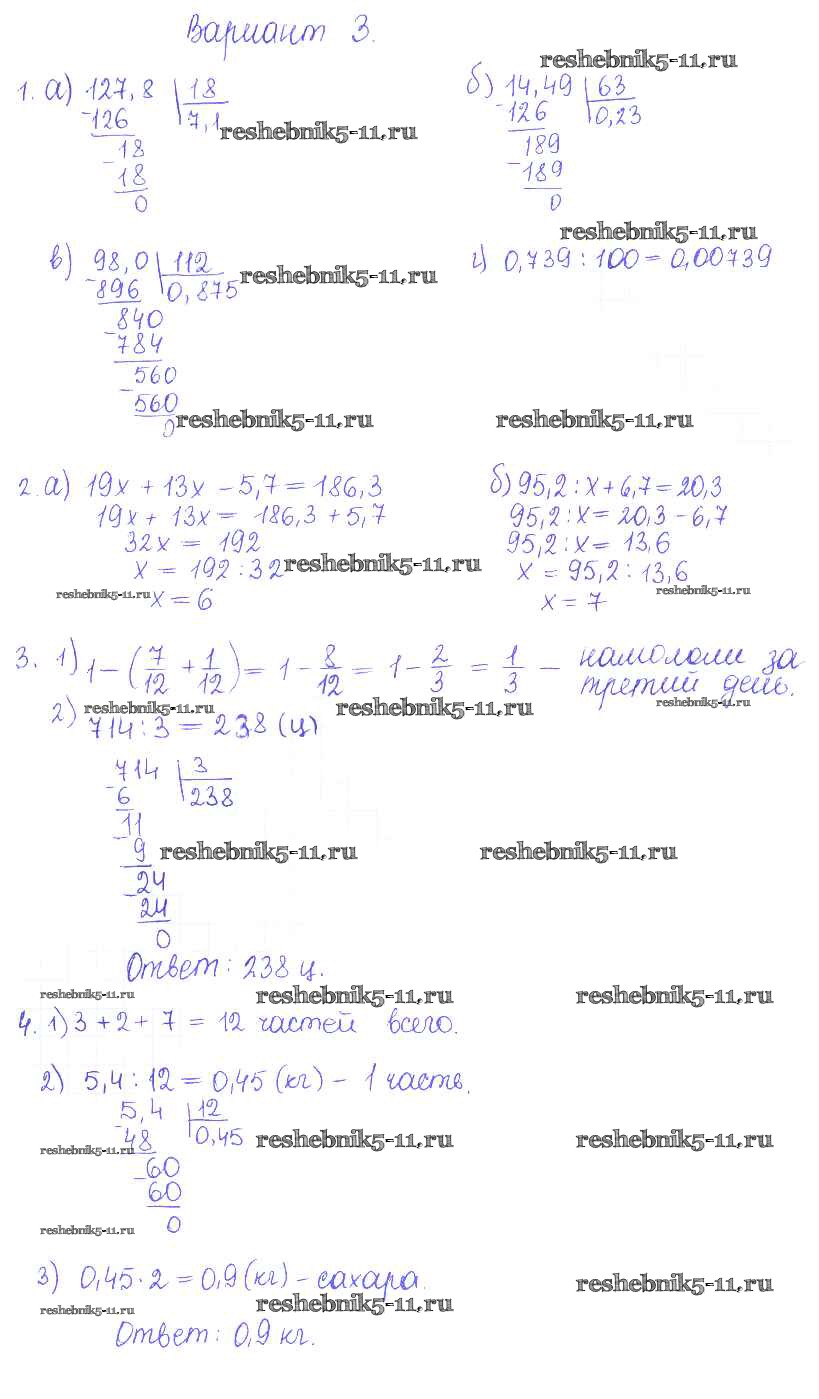 Вариант 3.
reshebnik5-11.ru
1. а) 127,8 | 18
-126 7,1 reshebnik5-11.ru
18
-18
0
б) 14,49 | 63
-126 0,23
189
-189
0
reshebnik5-11.ru
в) 98,0 | 112 reshebnik5-11.ru
-896 0,875
840
-784
560
-560
0 reshebnik5-11.ru
г) 0,739 : 100 = 0,00739
reshebnik5-11.ru
2. а) 19х + 13х - 5,7 = 186,3
19х + 13х = 186,3 + 5,7
32х = 192
х = 192 : 32 reshebnik5-11.ru
reshebnik5-11.ru х = 6
б) 95,2 : х + 6,7 = 20,3
95,2 : х = 20,3 - 6,7
95,2 : х = 13,6
х = 95,2 : 13,6
reshebnik5-11.ru
х = 7
3. 1) 1 - (7/12 + 1/12) = 1 - 8/12 = 1 - 2/3 = 1/3 - намололи за
третий день.
reshebnik5-11.ru reshebnik5-11.ru reshebnik5-11.ru
2) 714 : 3 = 238 (ц)
714 | 3
-6 238
11
-9 reshebnik5-11.ru reshebnik5-11.ru
24
-24
0
Ответ: 238 ц.
reshebnik5-11.ru reshebnik5-11.ru reshebnik5-11.ru
4. 1) 3 + 2 + 7 = 12 частей всего.
2) 5,4 : 12 = 0,45 (кг) - 1 часть.
5,4 | 12
-48 0,45 reshebnik5-11.ru reshebnik5-11.ru
reshebnik5-11.ru
-60
60
0
reshebnik5-11.ru
3) 0,45 · 2 = 0,9 (кг) - сахара.
reshebnik5-11.ru
reshebnik5-11.ru reshebnik5-11.ru
Ответ: 0,9 кг.